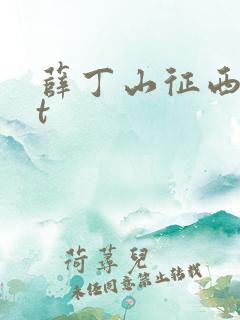 薛丁山征西
t
荷蓴兒
未经同意禁止转载